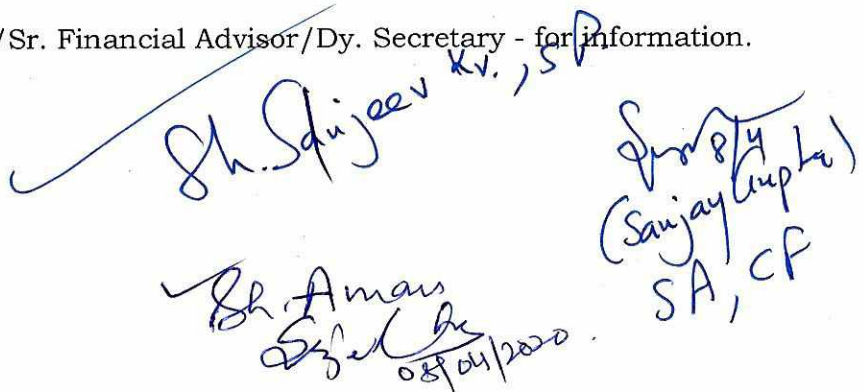 /Sr. Financial Advisor/Dy. Secretary - for information.
Sh. Sanjeev Kr., SP.
8/4
(Sanjay Gupta)
SA, CF
Sh. Aman
08/04/2020.